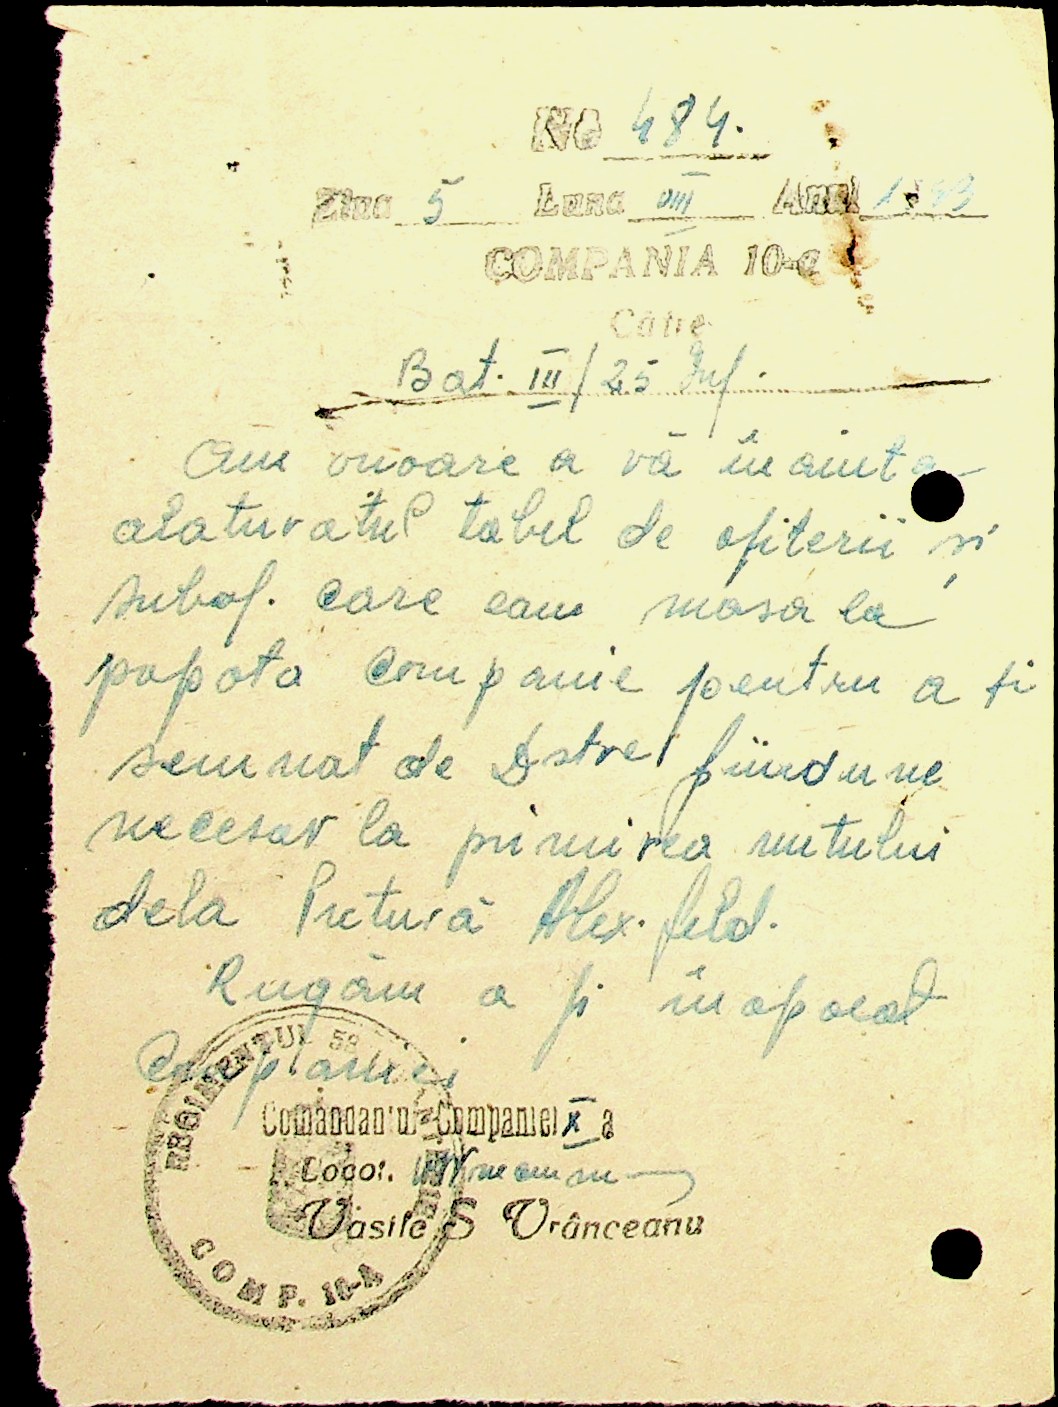 No 484.
Ziua 5 Luna VIII Anul 1943
COMPANIA 10-a
Către
Bat. III/25 Inf.
Am onoare a vă înainta
alaturatul tabel de ofiterii și
subof. care eau masa la
popota companie pentru a fi
semnat de Dstre fiindu ne
necesar la primirea untului
dela Pretură Alex. feld.
Rugăm a fi înapoeat
Companiei
Comandantul Companiei X a
Locot.
Vasile S Vrânceanu
REGIMENTUL 58
COMP. 10-A